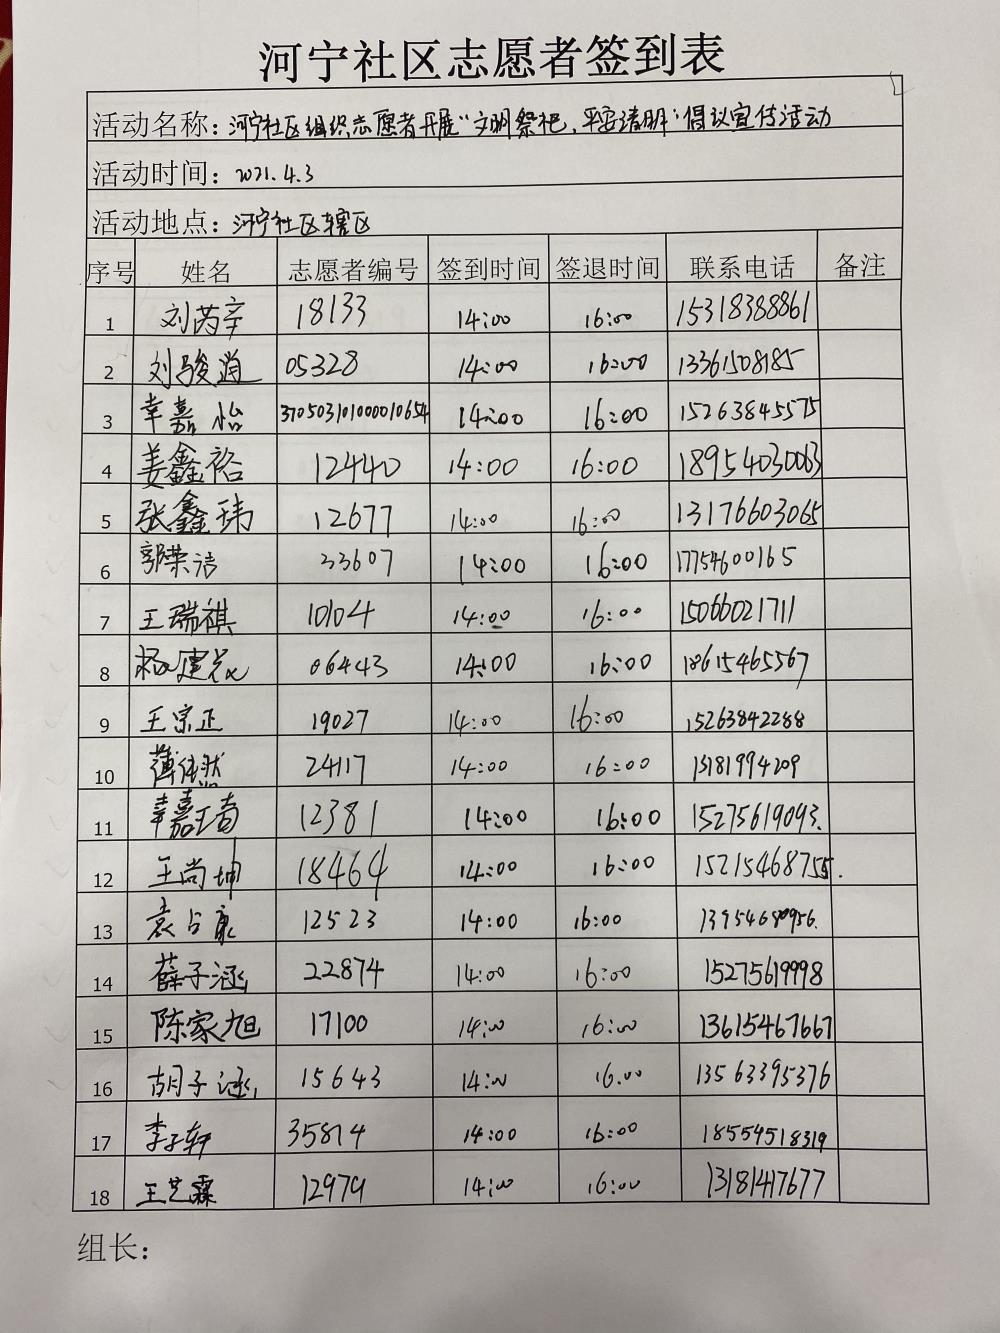 河宁社区志愿者签到表
活动名称：河宁社区组织志愿者开展“文明祭祀，平安清明”倡议宣传活动
活动时间：2021.4.3
活动地点：河宁社区辖区
序号 姓名 志愿者编号 签到时间 签退时间 联系电话 备注
1 刘芮辛 18133 14:00 16:00 15318388861
2 刘骏逍 05328 14:00 16:00 13361508185
3 幸嘉怡 37050310100010654 14:00 16:00 15263845575
4 姜鑫裕 12440 14:00 16:00 18954030063
5 张鑫玮 12677 14:00 16:00 13176603065
6 郭荣洁 33607 14:00 16:00 17754600165
7 王瑞祺 10104 14:00 16:00 15066021711
8 杨建 06443 14:00 16:00 18615465567
9 王宗正 19027 14:00 16:00 15263842288
10 薄 然 24117 14:00 16:00 13181994209
11 嘉琦 12381 14:00 16:00 15275619093.
12 王尚坤 18464 14:00 16:00 15215468755.
13 袁占康 12523 14:00 16:00
14 薛子涵 22874 14:00 16:00 15275619998
15 陈家旭 17100 14:00 16:00 13615467667
16 胡子涵 15643 14:00 16.00 13563395376
17 李子轩 35814 14:00 16:00 18554518319
18 王艺霖 12979 14:00 16:00 13181417677
组长：